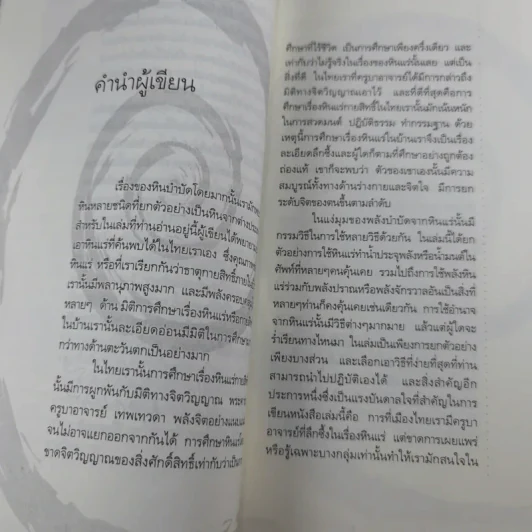 คำนำผู้เขียน
เรื่องของหินบำบัดโดยมากนั้นเรามัก
หินหลายชนิดที่ยกตัวอย่างเป็นหินจากต่างประ
สำหรับในเล่มที่ท่านอ่านอยู่นี้ผู้เขียนได้พยายาม
เอาหินแร่ที่ค้นพบได้ในไทยเราเอง ซึ่งคุณภาพ
หินแร่ หรือที่เราเรียกกันว่าธาตุกายสิทธิ์ภายใน
เรานั้นมีพลานุภาพสูงมาก และมีพลังครอบคลุม
หลายๆ ด้าน มิติการศึกษาเรื่องหินแร่หรือการ
ในบ้านเรานั้นละเอียดอ่อนมีมิติในการศึกษา
กว่าทางด้านตะวันตกเป็นอย่างมาก
ในไทยเรานั้นการศึกษาเรื่องหินแร่กายสิ
นั้นมีการผูกพันกับมิติทางจิตวิญญาณ พระ
ครูบาอาจารย์ เทพเทวดา พลังจิตอย่างแนบแน่
จนไม่อาจแยกออกจากกันได้ การศึกษาหินแร่
ขาดจิตวิญญาณของสิ่งศักดิ์สิทธิ์เท่ากับว่าเป็นก
ศึกษาที่ไร้ชีวิต เป็นการศึกษาเพียงครึ่งเดียว และ
เท่ากับว่าไม่รู้จริงในเรื่องของหินแร่นั้นเลย แต่เป็น
สิ่งที่ดี ในไทยเราที่ครูบาอาจารย์ได้มีการกล่าวถึง
มิติทางจิตวิญญาณเอาไว้ และที่ดีที่สุดคือการ
ศึกษาเรื่องหินแร่กายสิทธิ์ในไทยเรานั้นมักเน้นหนัก
ในการสวดมนต์ ปฏิบัติธรรม ทำกรรมฐาน ด้วย
เหตุนี้การศึกษาเรื่องหินแร่ในบ้านเราจึงเป็นเรื่อง
ละเอียดลึกซึ้งและผู้ใดก็ตามที่ศึกษาอย่างถูกต้อง
ถ่องแท้ เขาก็จะพบว่า ตัวของเขาเองนั้นมีความ
สมบูรณ์ทั้งทางด้านร่างกายและจิตใจ มีการยก
ระดับจิตของตนขึ้นตามลำดับ
ในแง่มุมของพลังบำบัดจากหินแร่นั้นมี
กรรมวิธีในการใช้หลายวิธีด้วยกัน ในเล่มนี้ได้ยก
ตัวอย่างการใช้หินแร่ทำน้ำประจุพลังหรือน้ำมนต์ใน
ศัพท์ที่หลายๆคนคุ้นเคย รวมไปถึงการใช้พลังหิน
แร่ร่วมกับพลังปราณหรือพลังจักรวาลอันเป็นสิ่งที่
หลายๆท่านก็คงคุ้นเคยเช่นเดียวกัน การใช้อำนาจ
จากหินแร่นั้นมีวิธีต่างๆมากมาย แล้วแต่ผู้ใดจะ
ร่ำเรียนทางไหนมา ในเล่มเป็นเพียงการยกตัวอย่าง
เพียงบางส่วน และเลือกเอาวิธีที่ง่ายที่สุดที่ท่าน
สามารถนำไปปฏิบัติเองได้ และสิ่งสำคัญอีก
ประการหนึ่งซึ่งเป็นแรงบันดาลใจที่สำคัญในการ
เขียนหนังสือเล่มนี้คือ การที่เมืองไทยเรามีครูบา
อาจารย์ที่ลึกซึ้งในเรื่องหินแร่ แต่ขาดการเผยแพร่
หรือรู้เฉพาะบางกลุ่มเท่านั้นทำให้เรามักสนใจใน